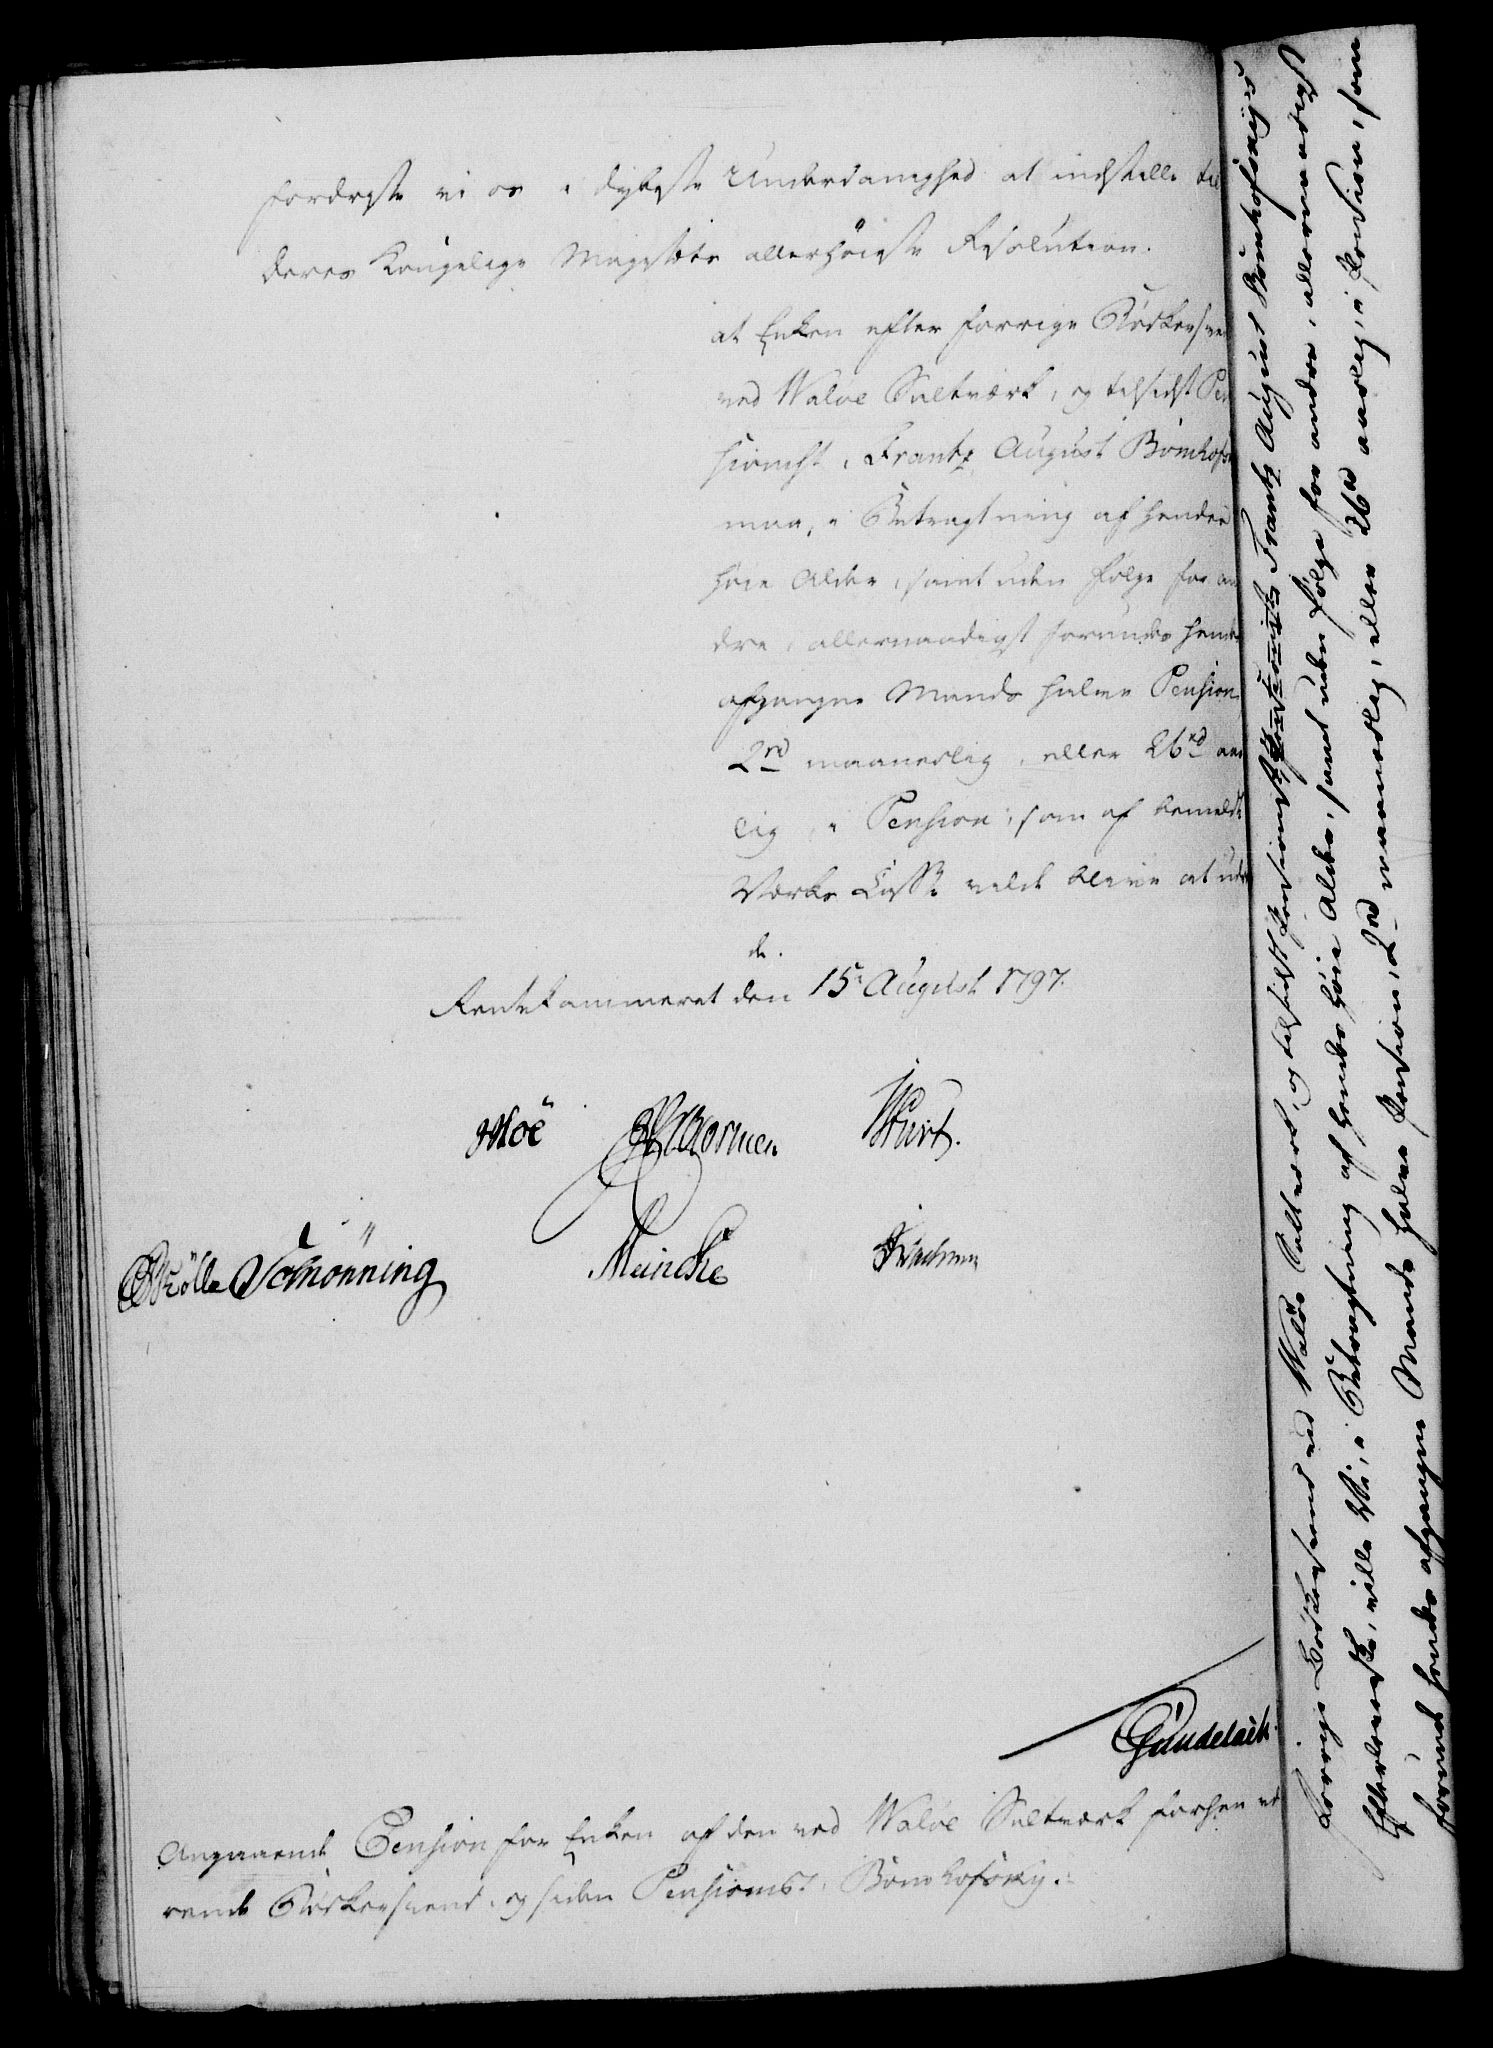 fordriste vi os i dybeste Underdanighed at indstille til
Deres Kongelige Majestets allerhøieste Resolution.
at Enken efter forrige Bødkersvend
ved Waløe Saltværk, og tilsidst Pen
sionist, Frantz August Bömhof
maa, i Betragtning af hendes
høie Alder, samt uden Følge for an
dre, allernaadigst forundes hendes
afgangne Mands halve Pension
2 rd maanedlig, eller 26 rd aar
lig, i Pension, som af bemeldte
Værks Casse vilde blive at udre
de.
Rentekammeret den 15 August 1797.
Moe Wormen Wurt.
Mölle Schönning Meincke
Gundelach
Angaaende Pension for Enken af den ved Waløe Saltværk forhen væ
rende Bödkersvend, og siden Pensionist,
forrige Bödkersvend ved Waløe Saltværk, og tilsidst Pensionist Frantz August
Efterleverske, ville Vi, i Betragtning af hendes høie Alder, samt uden Følge for andre, allernaadigst
forundt hendes afgangne Mands halve Pension, 2 rd maanedlig, eller 26 rd aarlig, i Pension, som